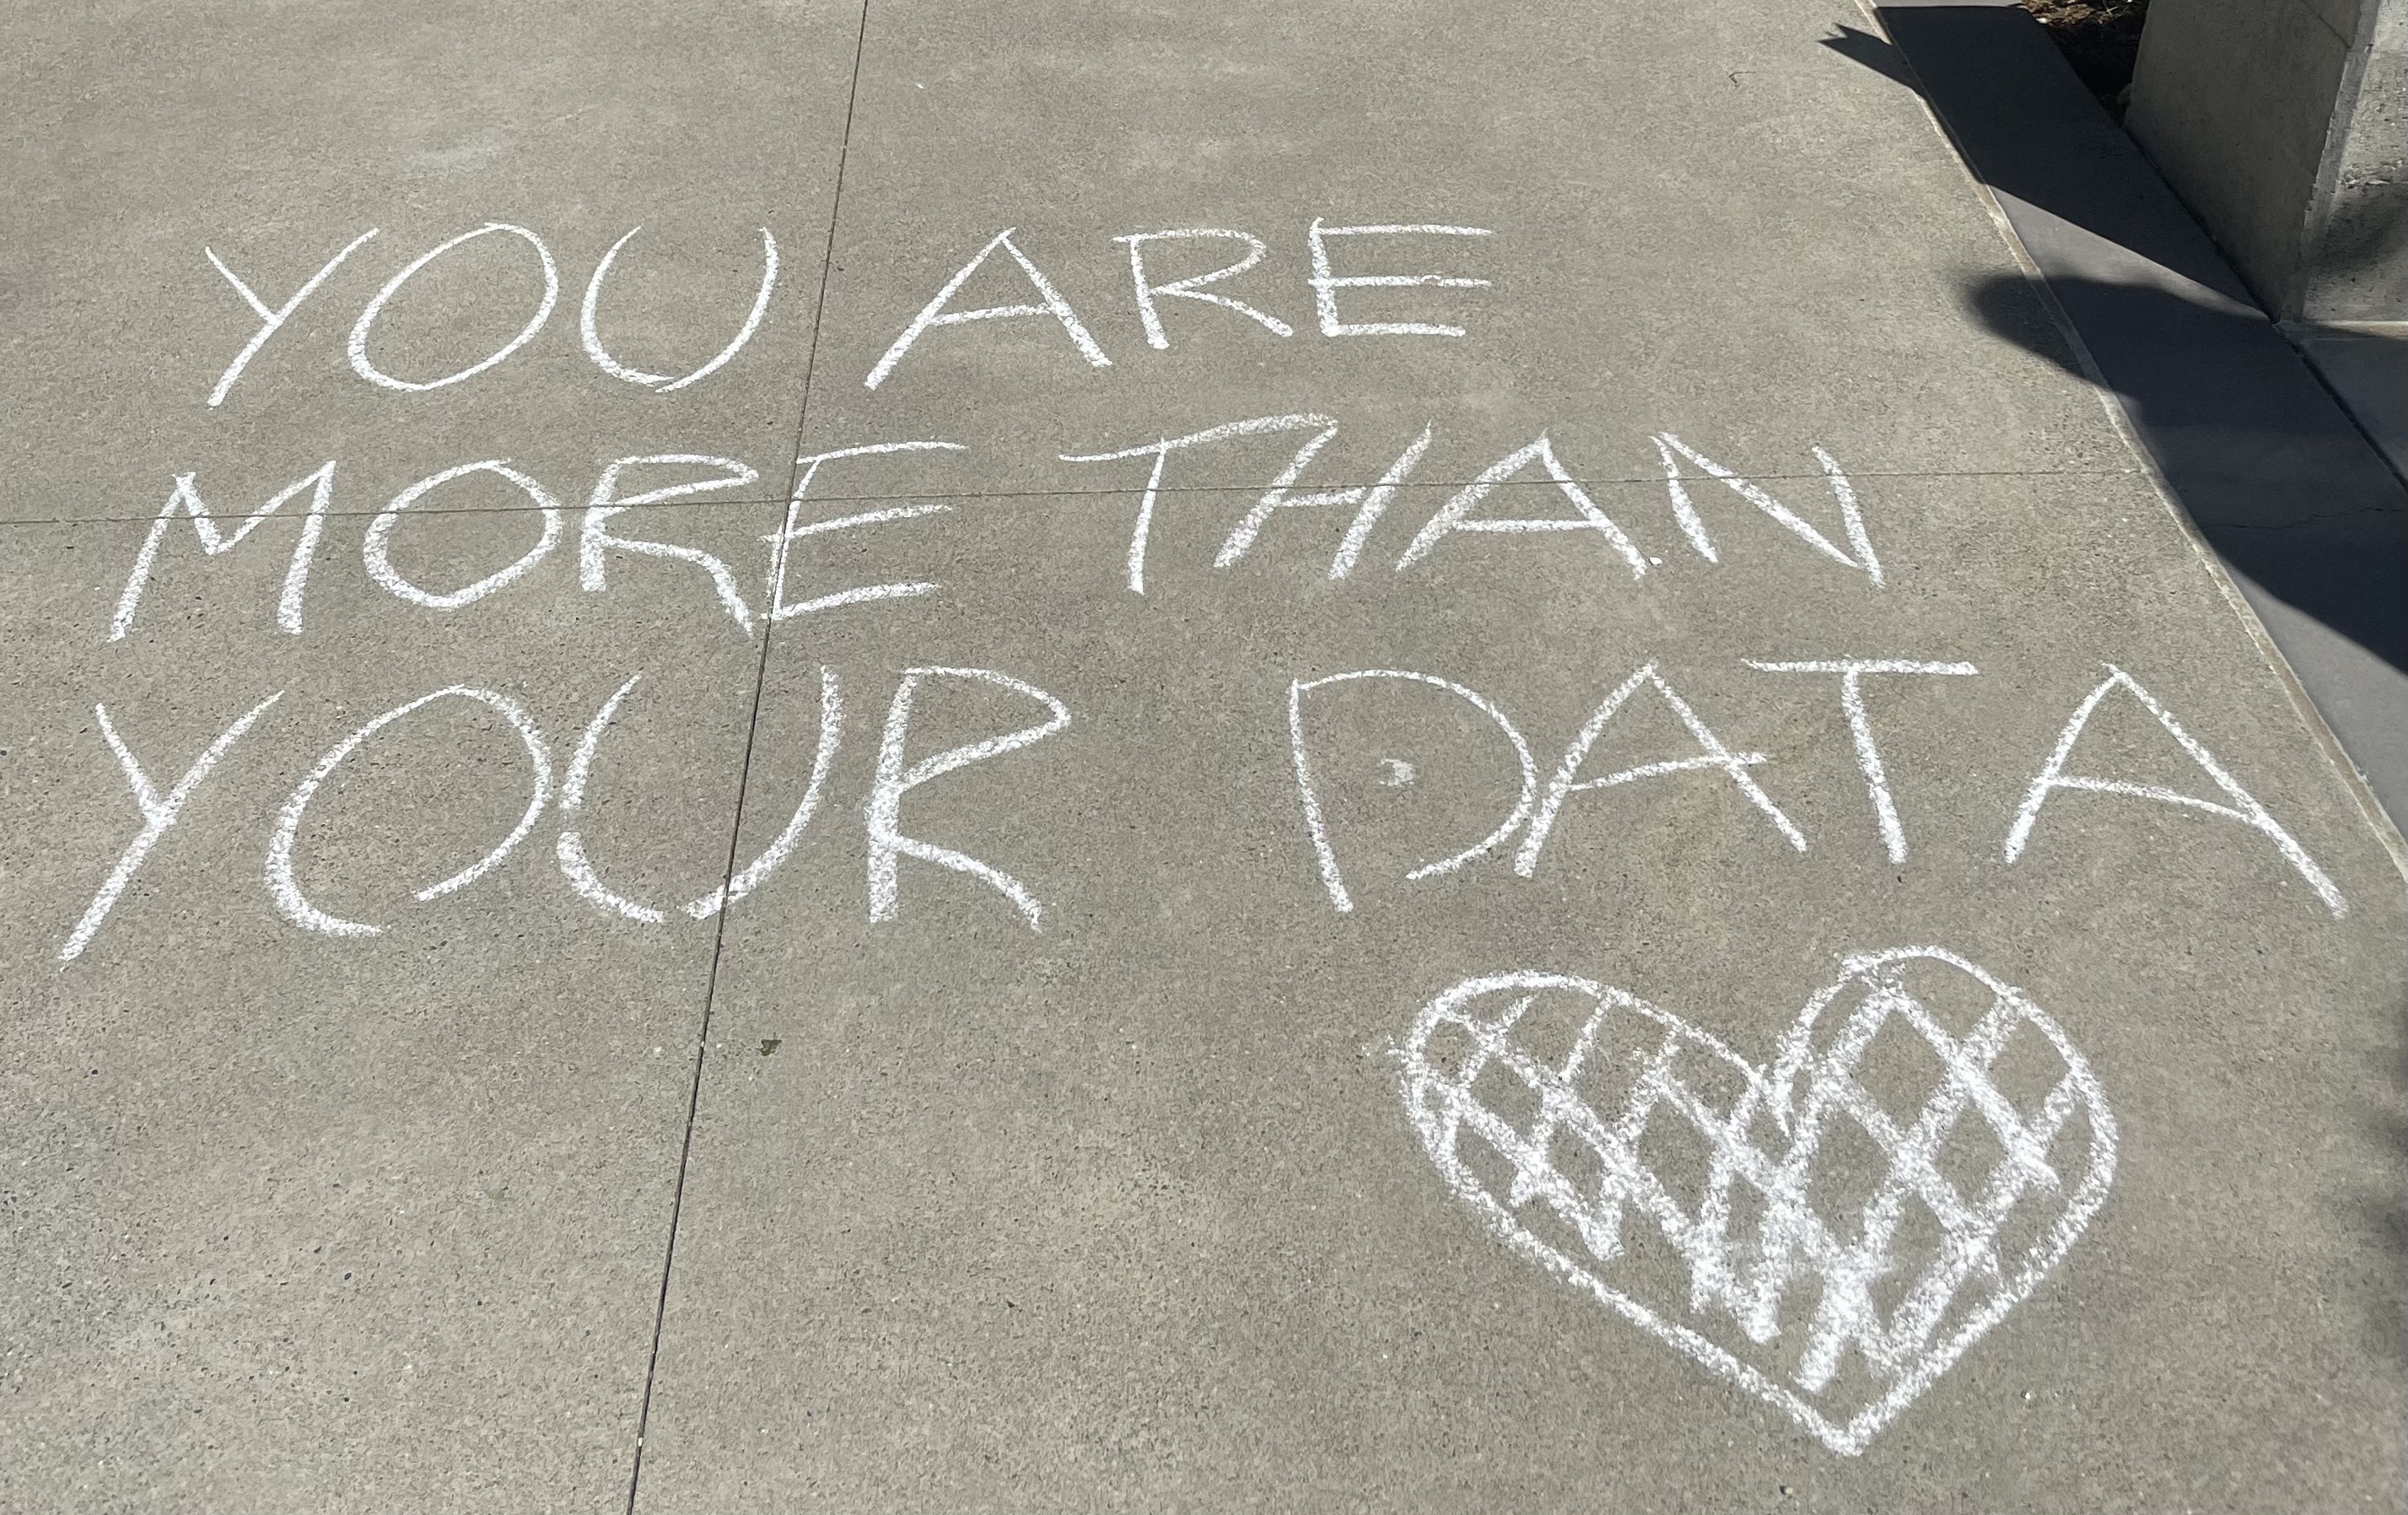 YOU ARE
MORE THAN
YOUR DATA